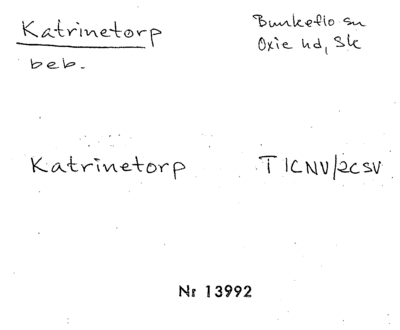 Katrinetorp
beb.
Bunkeflo sn
Oxie hd, Sk
Katrinetorp T 1CNV/2CSV
Nr 13992